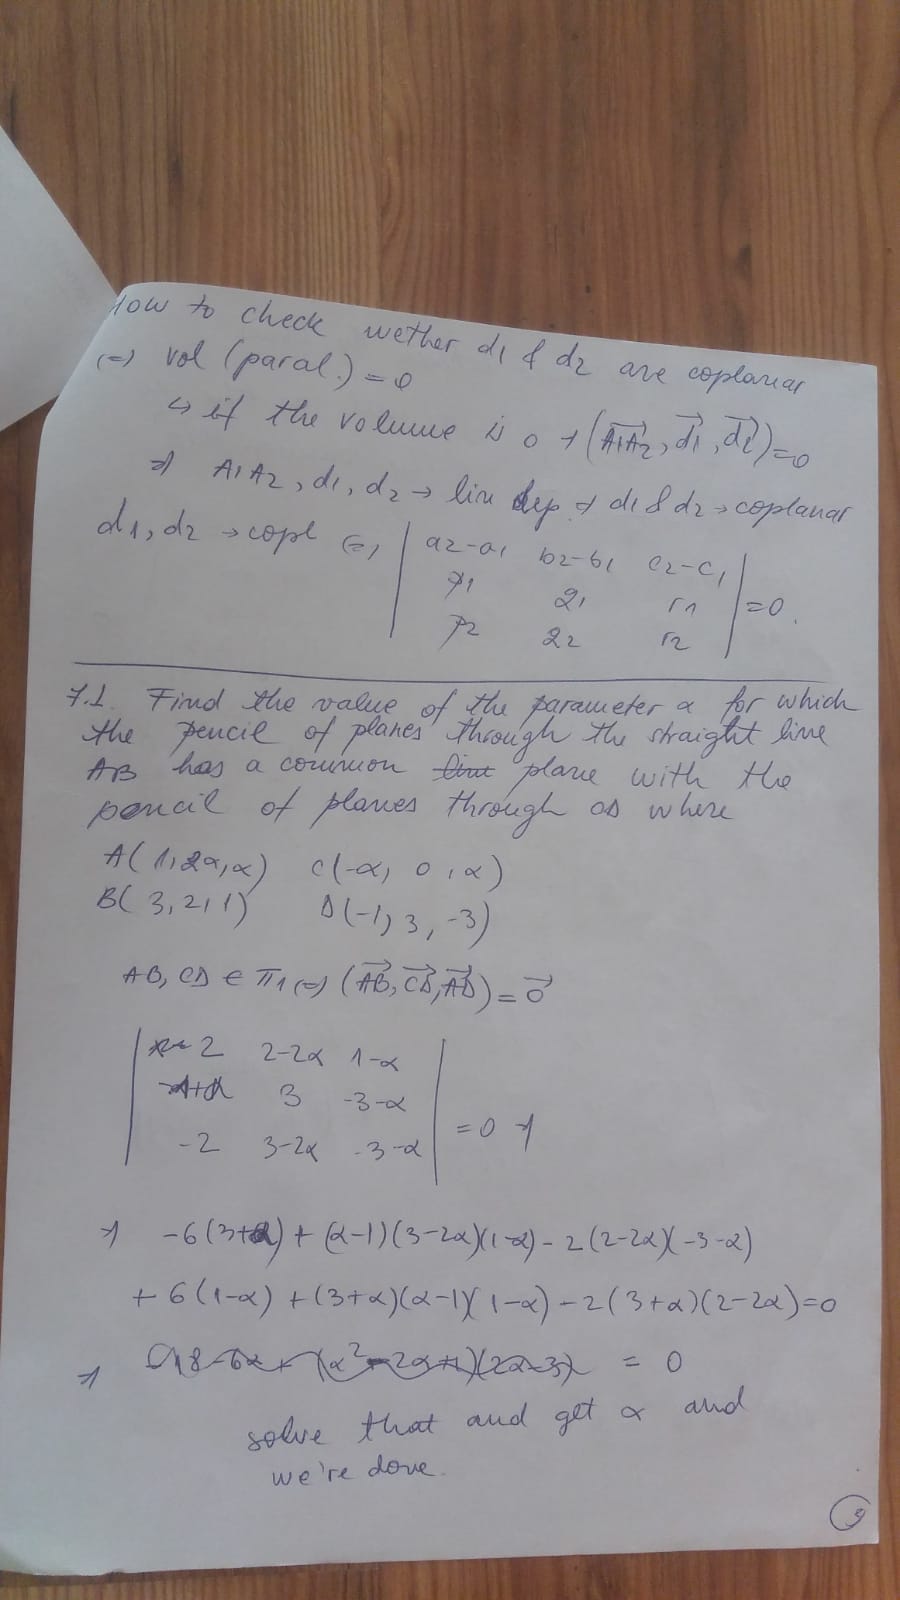 How to check wether d1 & d2 are coplanar
(=) vol (paral.) = 0
↳ if the volume is 0 ⇒ (A1A2, d1, d2) = 0
⇒ A1A2, d1, d2 → lin dep ⇒ d1 & d2 → coplanar
d1, d2 → copl (=) | a2-a1 b2-b1 c2-c1 |
p1 q1 r1 = 0.
p2 q2 r2
7.1. Find the value of the parameter α for which
the pencil of planes through the straight line
AB has a common plane with the
pencil of planes through CD where
A(1, 2α, α) C(-α, 0, α)
B(3, 2, 1) D(-1, 3, -3)
AB, CD ∈ π1 (=) (AB, CD, AD) = 0
2 2-2α 1-α
-1+α 3 -3-α
-2 3-2α -3-α = 0 ⇒
⇒ -6(3+α) + (α-1)(3-2α)(1-α) - 2(2-2α)(-3-α)
+ 6(1-α) + (3+α)(α-1)(1-α) - 2(3+α)(2-2α) = 0
⇒ = 0
solve that and get α and
we're done.